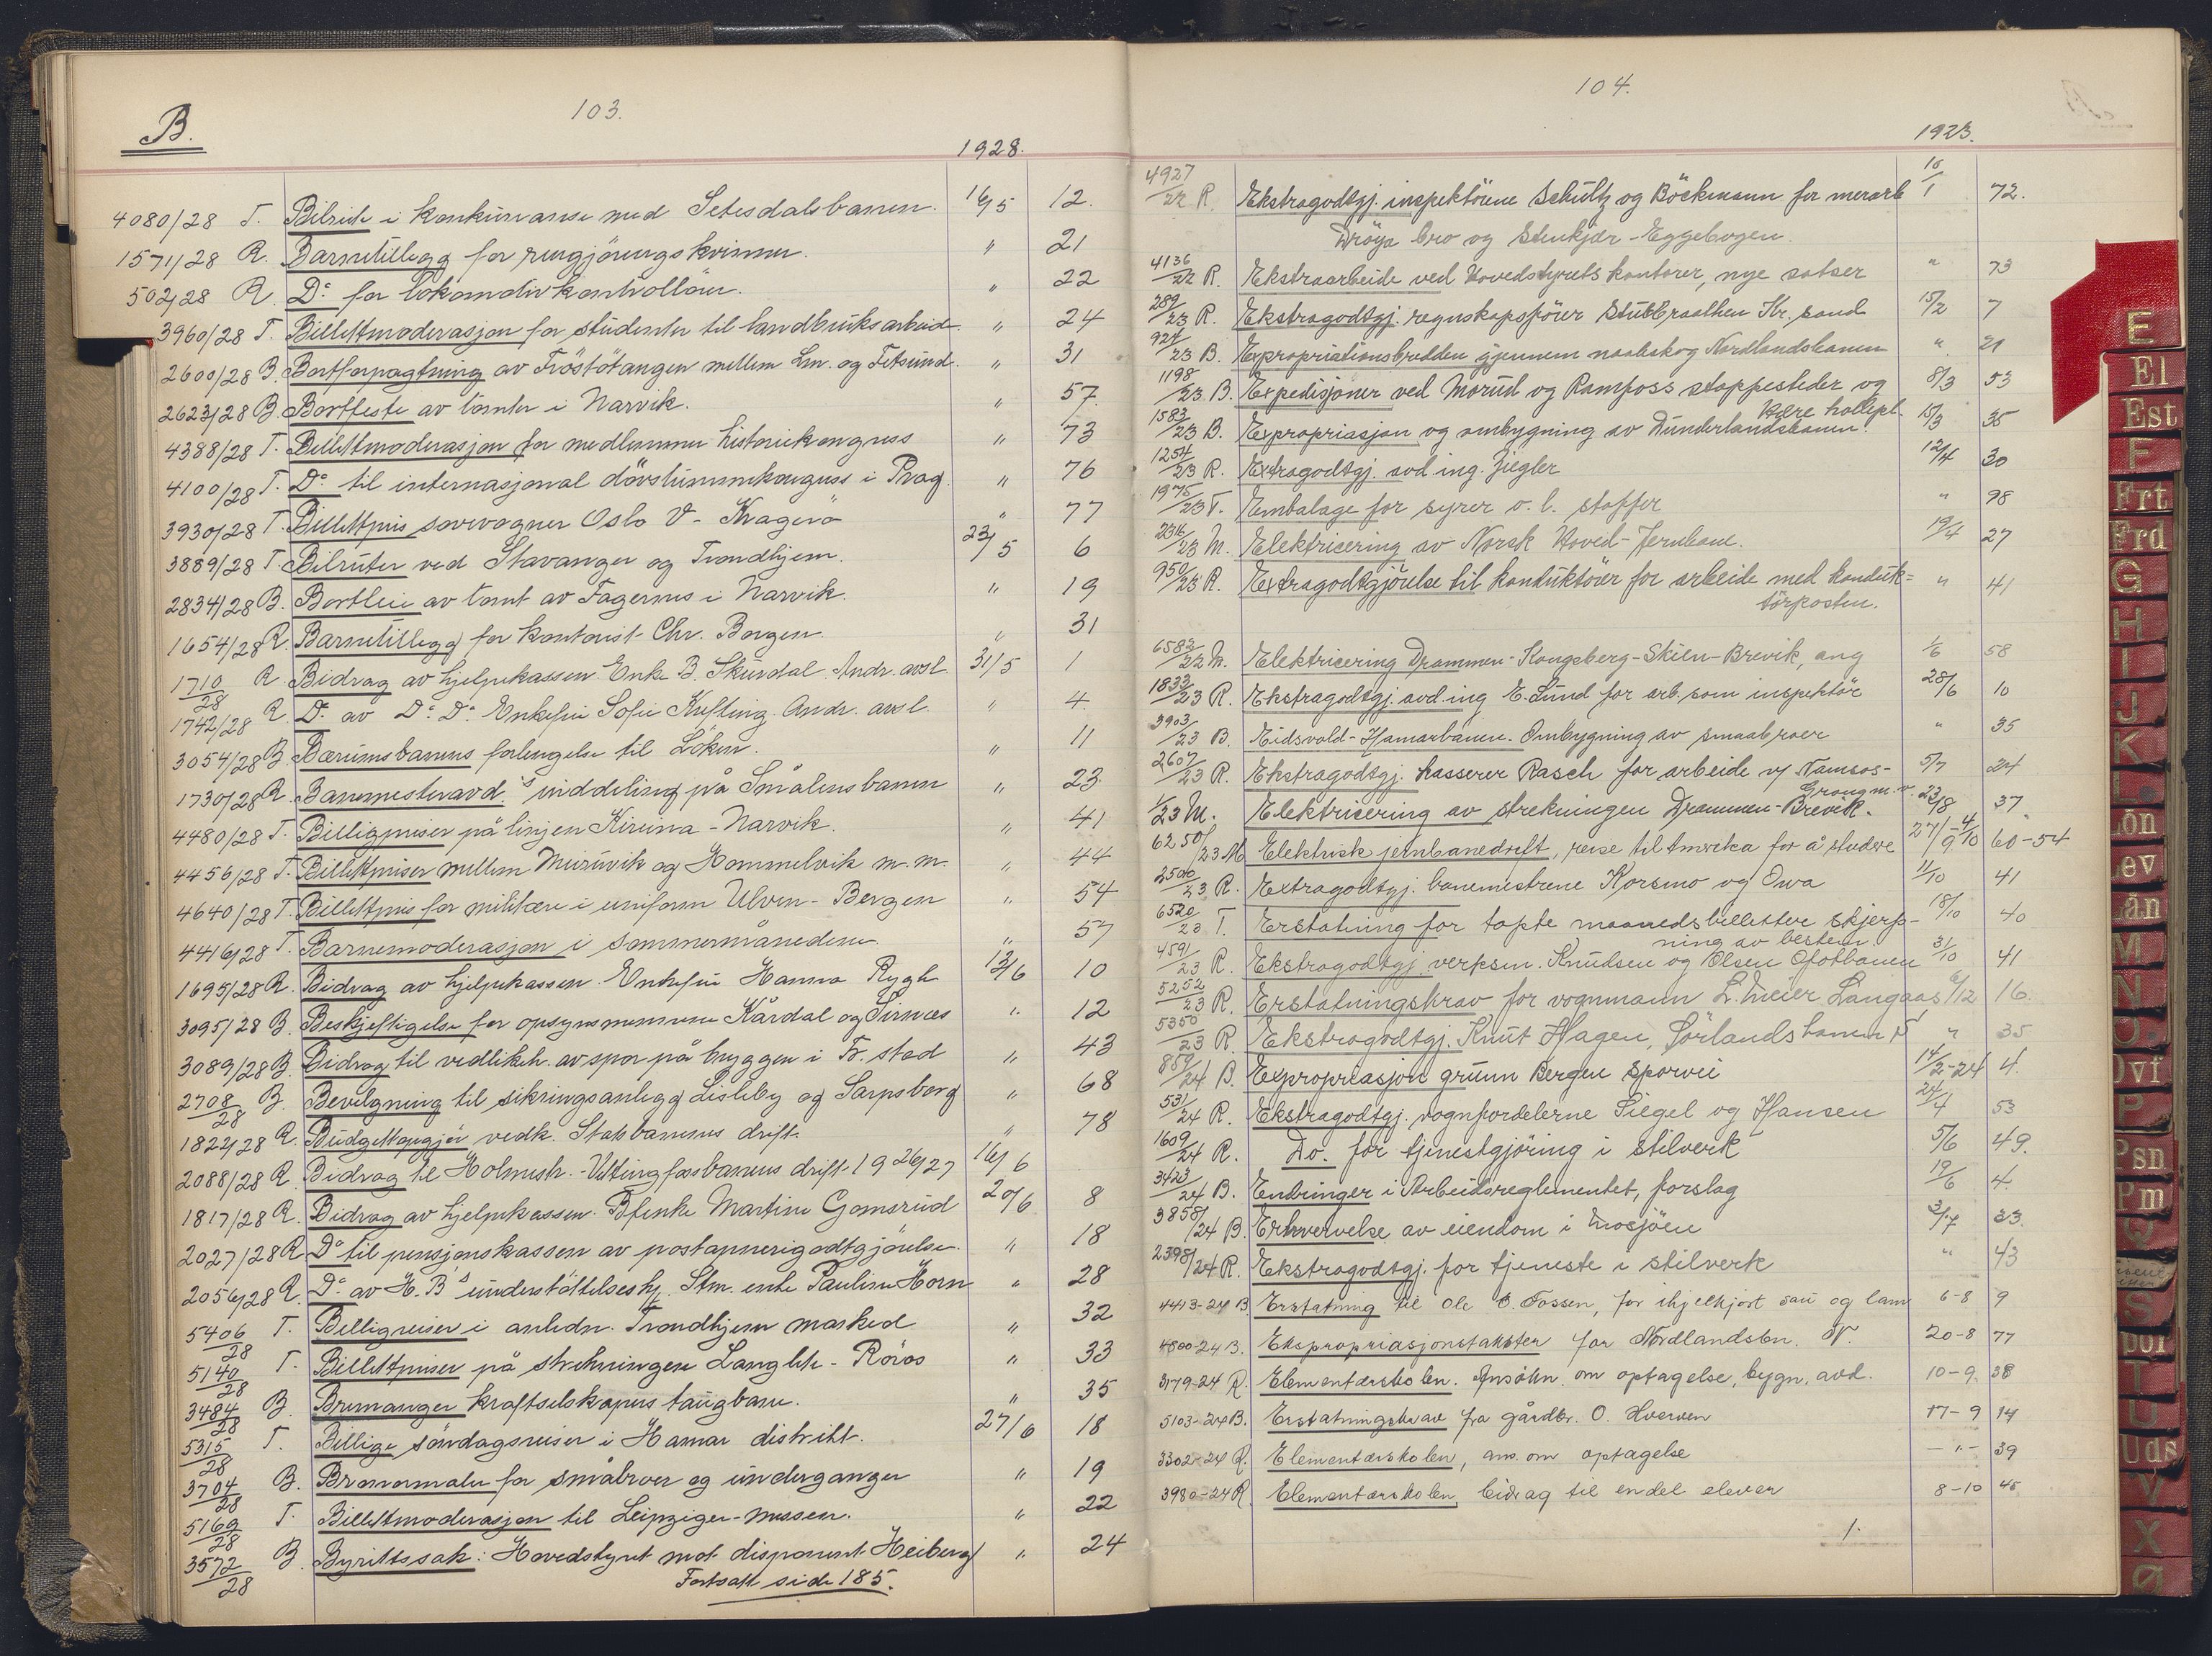 103.
B.
1928.
4080/28 T. Bilrute i konkurranse med Setesdalsbanen. 16/5 12.
1571/28 R. Barnetillegg for rengjöringskvinner. " 21
502/28 R. Do for lokomotivkontrollör. " 22
3960/28 T. Billettmoderasjon for studenter til landbruksarbeid. " 24
2600/28 B. Bortforpagtning av Fröstötangen mellem Lm. og Fetsund. " 31
2623/28 B. Bortfeste av tomter i Narvik. " 57.
4388/28 T. Billettmoderasjon for medlemmer historiekongress " 73
4100/28 T. Do til internasjonal dövstummekongress i Prag. " 76
3930/28 T. Billettpris sovevogner Oslo V - Kragerö " 77
3889/28 T. Bilruter ved Stavanger og Trondhjem. 23/5 6
2834/28 B. Bortleie av tomt av Fagernes i Narvik. " 19
1654/28 R. Barnetillegg for kontorist Chr. Borgen. " 31
1710/28 R. Bidrag av hjelpekassen Enke B. Skurdal. Andr. avsl. 31/5 1
1742/28 R. Do av Do Do Enkefru Sofie Kufting. Andr. avsl. " 4.
3054/28 B. Bærumsbanens forlengelse til Löken. " 11
1730/28 R. Banemesteravd.s inddeling på Smålensbanen " 23
4480/28 T. Billigpriser på linjen Kiruna - Narvik. " 41
4456/28 T. Billettpriser mellem Muruvik og Hommelvik m.m. " 44
4640/28 T. Billettpris for militære i uniform Ulven - Bergen " 54
4416/28 T. Barnemoderasjon i sommermånedene. " 57
1695/28 R. Bidrag av hjelpekassen Enkefru Hanna Rygh 13/6 10
3095/28 B. Beskjeftigelse for opsynsmennene Kårdal og Turnes " 12
3089/28 B. Bidrag til vedlikeh. av spor på bryggen i Fr. stad " 43
2708/28 B. Bevilgning til sikringsanlegg Lisleby og Sarpsborg " 68
1822/28 R. Budgettopgjör vedk. Statsbanenes drift. " 78
2088/28 R. Bidrag til Holmestr.-Vittingfossbanens drift 1926/27 16/6
1817/28 R. Bidrag av hjelpekassen Bfenke Martine Gomsrud 20/6 8
2027/28 R. Do til pensjonskassen av postapnerigodtgjörelse. " 18
2056/28 R. Do av H.B's understöttelseskj. Stm. enke Pauline Horn " 28
5406/28 T. Billigreiser i anledn. Trondhjem marked " 32
5140/28 T. Billettpriser på strekningen Langlete - Röros " 33
3484/28 B. Bremanger kraftselskapers taugbane. " 35
5315/28 T. Billige söndagsreiser i Hamar distrikt. 27/6 18
3704/28 B. Bronormaler for småbroer og underganger " 19
5169/28 T. Billettmoderasjon til Leipziger-messen. " 22
3572/28 B. Byrettssak: Hovedstyret mot disponent Heiberg " 24
Fortsatt side 185.
104.
1923.
4927/22 R. Ekstragodtgj. inspektörene Schultz og Böckmann for merarb 10/1 72.
Dröya bro og Stenkjær - Eggebogen.
4136/22 R. Ekstraarbeide ved Hovedstyrets kontorer, nye satser " 73
289/23 R. Ekstragodtgj. regnskapsförer Stubbraathen Kr.sand 15/2 7
921/23 B. Expropriationsbredden gjennem naaleskog Nordlandsbanen " 21
1198/23 B. Expedisjoner ved Morud og Ramfoss stoppesteder og 8/3 53
Kære holdepl.
1583/23 B. Expropriasjon og ombygning av Dunderlandsbanen. 15/3 35
1254/23 R. Extragodtgj. avd. ing. Ziegler 12/4 30
1975/23 T. Embalage for syrer o.l. stoffer " 98
2316/23 M. Elektricering av Norsk Hoved-Jernbane. 19/4 27
950/23 R. Extragodtgjörelse til konduktörer for arbeide med konduk= " 41
törposten.
6583/22 M. Elektricering Drammen-Kongsberg-Skien-Brevik, ang 1/6 58
1833/23 R. Ekstragodtgj. avd.ing E. Lund for arb. som inspektör 28/6 10
3903/23 B. Eidsvold-Hamarbanen. Ombygning av smaabroer " 35
2607/23 R. Ekstragodtgj. kasserer Rasch for arbeide v/ Namsos- 5/7 24
Grongm.v.
1/23 M. Elektricering av strekningen Drammen-Brevik. 23/8 37
6250/23 M Elektrisk jernbanedrift, reise til Amerika for å studere 27/9-4/10 60-54
2500/23 R. Extragodtgj. banemestrene Korsmo og Owa 11/10 41
6520/23 T. Erstatning for tapte maanedsbilletter skjerp- 18/10 40
ning av bestem.
4591/23 R. Ekstragodtgj. verksm. Knudsen og Olsen Ofotbanen 31/10 41
5252/23 R. Erstatningskrav for vognmann L. Meier, Langaas 6/12 16.
5350/23 R. Ekstragodtgj. Knut Hagen, Sørlandsbanen " 35
859/24 B. Expropriasjon grunn Bergen Sporvei 14/2-24 4.
531/24 R. Ekstragodtgj. vognfordelerne Siegel og Hansen 24/4 53
1609/24 R. Do. for tjenestgjöring i stilverk 5/6 49.
3423/24 B. Endringer i Arbeidsreglementet, forslag 19/6 4.
3858/24 B. Erhvervelse av eiendom i Mosjöen 3/7 33.
2398/24 R. Ekstragodtgj. for tjeneste i stilverk " 43
4413-24 B Erstatning til Ole O. Fossen, for ihjelkjørt sau og lam 6-8 9
4800-24 B. Ekspropriasjonstakster for Nordlandsbn. N. 20-8 77
3179-24 R. Elementærskolen. Ansøkn. om optagelse, bygn. avd. 10-9. 38
5103-24 B. Erstatningskrav fra gårdbr. O. Hverven 17-9 14
3302-24 R. Elementærskolen, ans. om optagelse -"- 39
3980-24 R. Elementærskolen, bidrag til endel elever 8-10 45
1.
E
El
Est
F
Frt
Frd
G
H
I
J
K
L
Løn
Lev
Lån
M
N
O
Ovf
P
Psn
Pm
Q
S
T
U
Uds
V
X
Ø